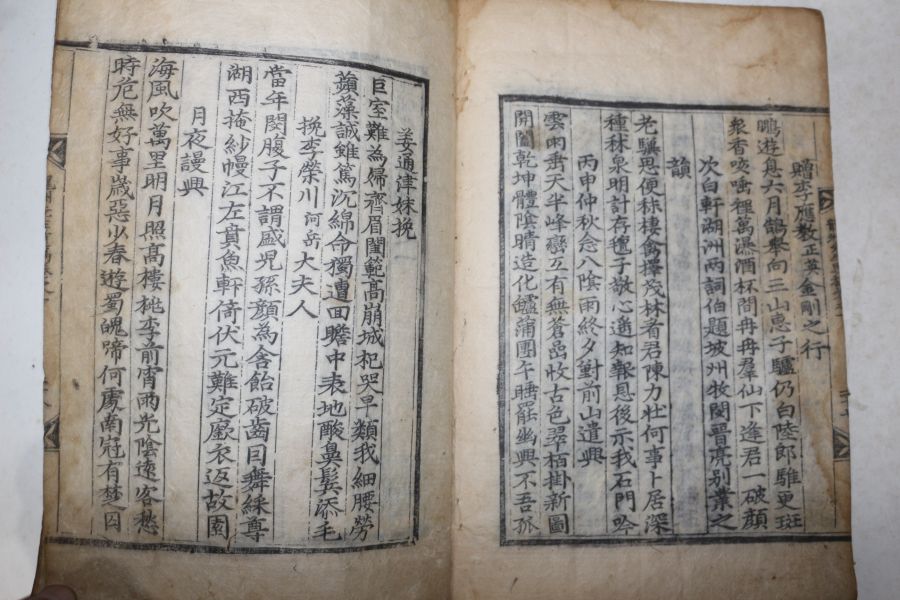 贈李應敎正英金剛之行
鵬遊息六月鶴擧向三山惠子驢仍白陸郎騅更斑
衆香咳唾裡萬瀑酒杯間冉冉羣仙下逢君一破顔
次白軒湖洲兩詞伯題坡州牧閔晉亮別業之
韻
老驥思便秣棲禽擇茂林看君陳力壯何事卜居深
種秫泉明計存氊子敬心遒知報恩後示我石門吟
丙申仲秋念八陰雨終夕對前山遣興
雲雨垂天半峰巒互有無蒼嵒收古色翠栢掛新圖
開闔乾坤體陰晴造化鑪蒲團午睡罷幽興不吾孤
姜通津妹挽
巨室難爲婦齊眉閨範高崩城杞哭早類我細腰勞
蘋藻誠雖篤沉綿命獨遭回瞻中表地酸鼻鬂添毛
挽李榮川河岳大夫人
當年閔腹子不謂盛兒孫顔爲含飴破齒曰舞綵尊
湖西掩紗幔江左賁魚軒倚伏元難定厭衣返故園
月夜謾興
海風吹萬里明月照高樓桃李前宵雨光陰遠客愁
時危無好事歲惡少春遊蜀魄啼何處南冠有楚囚